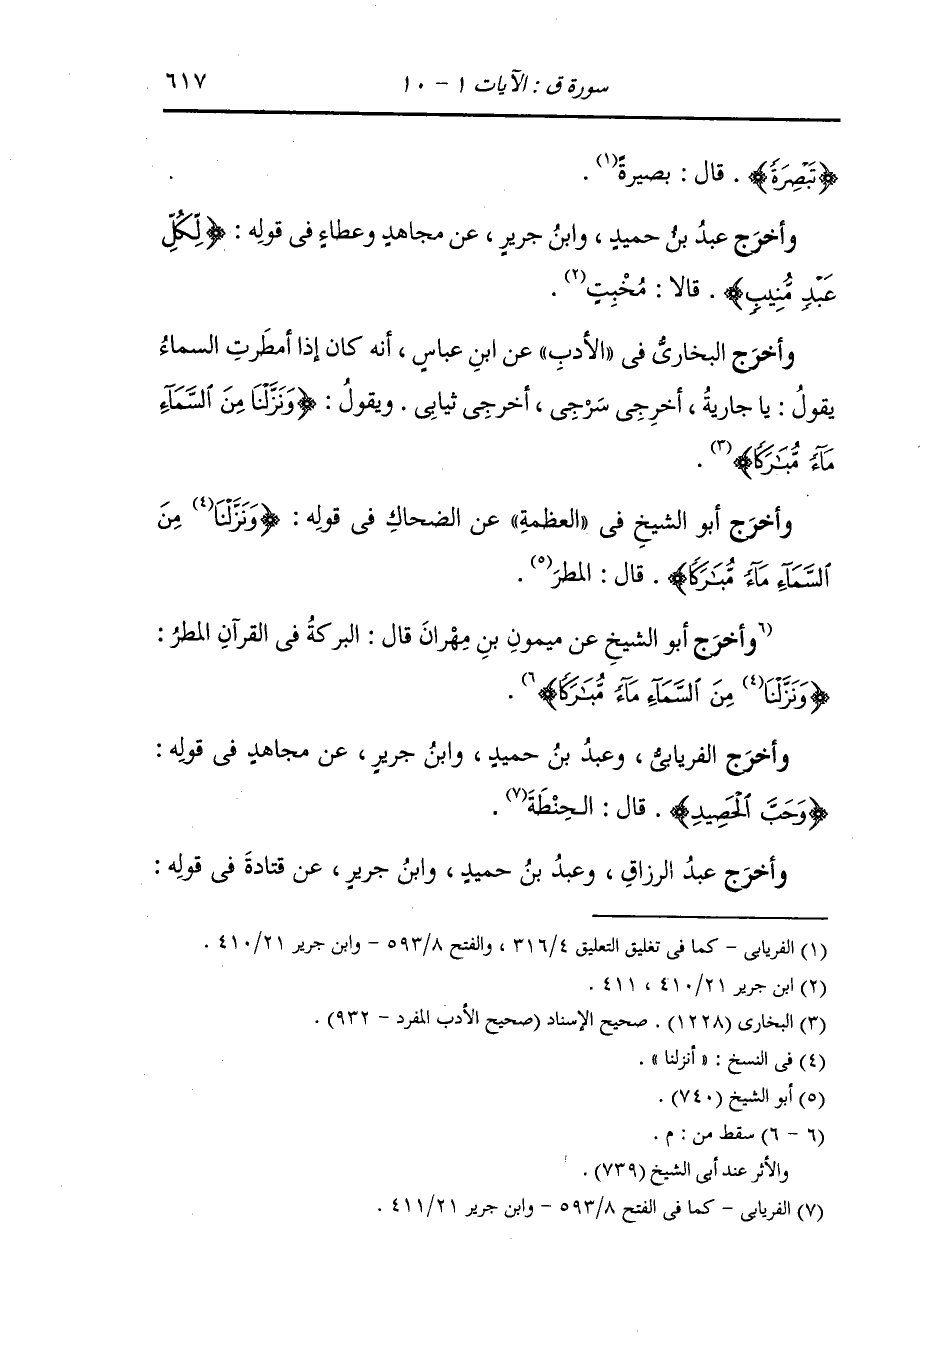 سورة ق : الآيات ١ - ١٠ ٦١٧
﴿تَبْصِرَةً﴾ . قال : بصيرةً(١) .
وأخرَج عبدُ بنُ حميدٍ ، وابنُ جريرٍ ، عن مجاهدٍ وعطاءٍ فى قولِه : ﴿لِّكُلِّ
عَبْدٍ مُّنِيبٍ﴾ . قالا : مُخْبِتٍ(٢) .
وأخرَج البخارىُّ فى «الأدبِ» عن ابنِ عباسٍ ، أنه كان إذا أمطَرتِ السماءُ
يقولُ : يا جاريةُ ، أخرِجى سَرْجى ، أخرجى ثيابى . ويقولُ : ﴿وَنَزَّلْنَا مِنَ ٱلسَّمَآءِ
مَآءً مُّبَٰرَكًا﴾(٣) .
وأخرَج أبو الشيخِ فى «العظمةِ» عن الضحاكِ فى قولِه : ﴿وَنَزَّلْنَا(٤) مِنَ
ٱلسَّمَآءِ مَآءً مُّبَٰرَكًا﴾ . قال : المطرَ(٥) .
(٦وأخرَج أبو الشيخِ عن ميمونِ بنِ مِهْرانَ قال : البركةُ فى القرآنِ المطرُ :
﴿وَنَزَّلْنَا(٤) مِنَ ٱلسَّمَآءِ مَآءً مُّبَٰرَكًا﴾٦) .
وأخرَج الفريابىُّ ، وعبدُ بنُ حميدٍ ، وابنُ جريرٍ ، عن مجاهدٍ فى قولِه :
﴿وَحَبَّ ٱلْحَصِيدِ﴾ . قال : الحِنْطَةَ(٧) .
وأخرَج عبدُ الرزاقِ ، وعبدُ بنُ حميدٍ ، وابنُ جريرٍ ، عن قتادةَ فى قولِه :
(١) الفريابى - كما فى تغليق التعليق ٣١٦/٤ ، والفتح ٥٩٣/٨ - وابن جرير ٤١٠/٢١ .
(٢) ابن جرير ٤١٠/٢١ ، ٤١١ .
(٣) البخارى (١٢٢٨) . صحيح الإسناد (صحيح الأدب المفرد - ٩٣٢) .
(٤) فى النسخ : « أنزلنا » .
(٥) أبو الشيخ (٧٤٠) .
(٦ - ٦) سقط من : م .
والأثر عند أبى الشيخ (٧٣٩) .
(٧) الفريابى - كما فى الفتح ٥٩٣/٨ - وابن جرير ٤١١/٢١ .